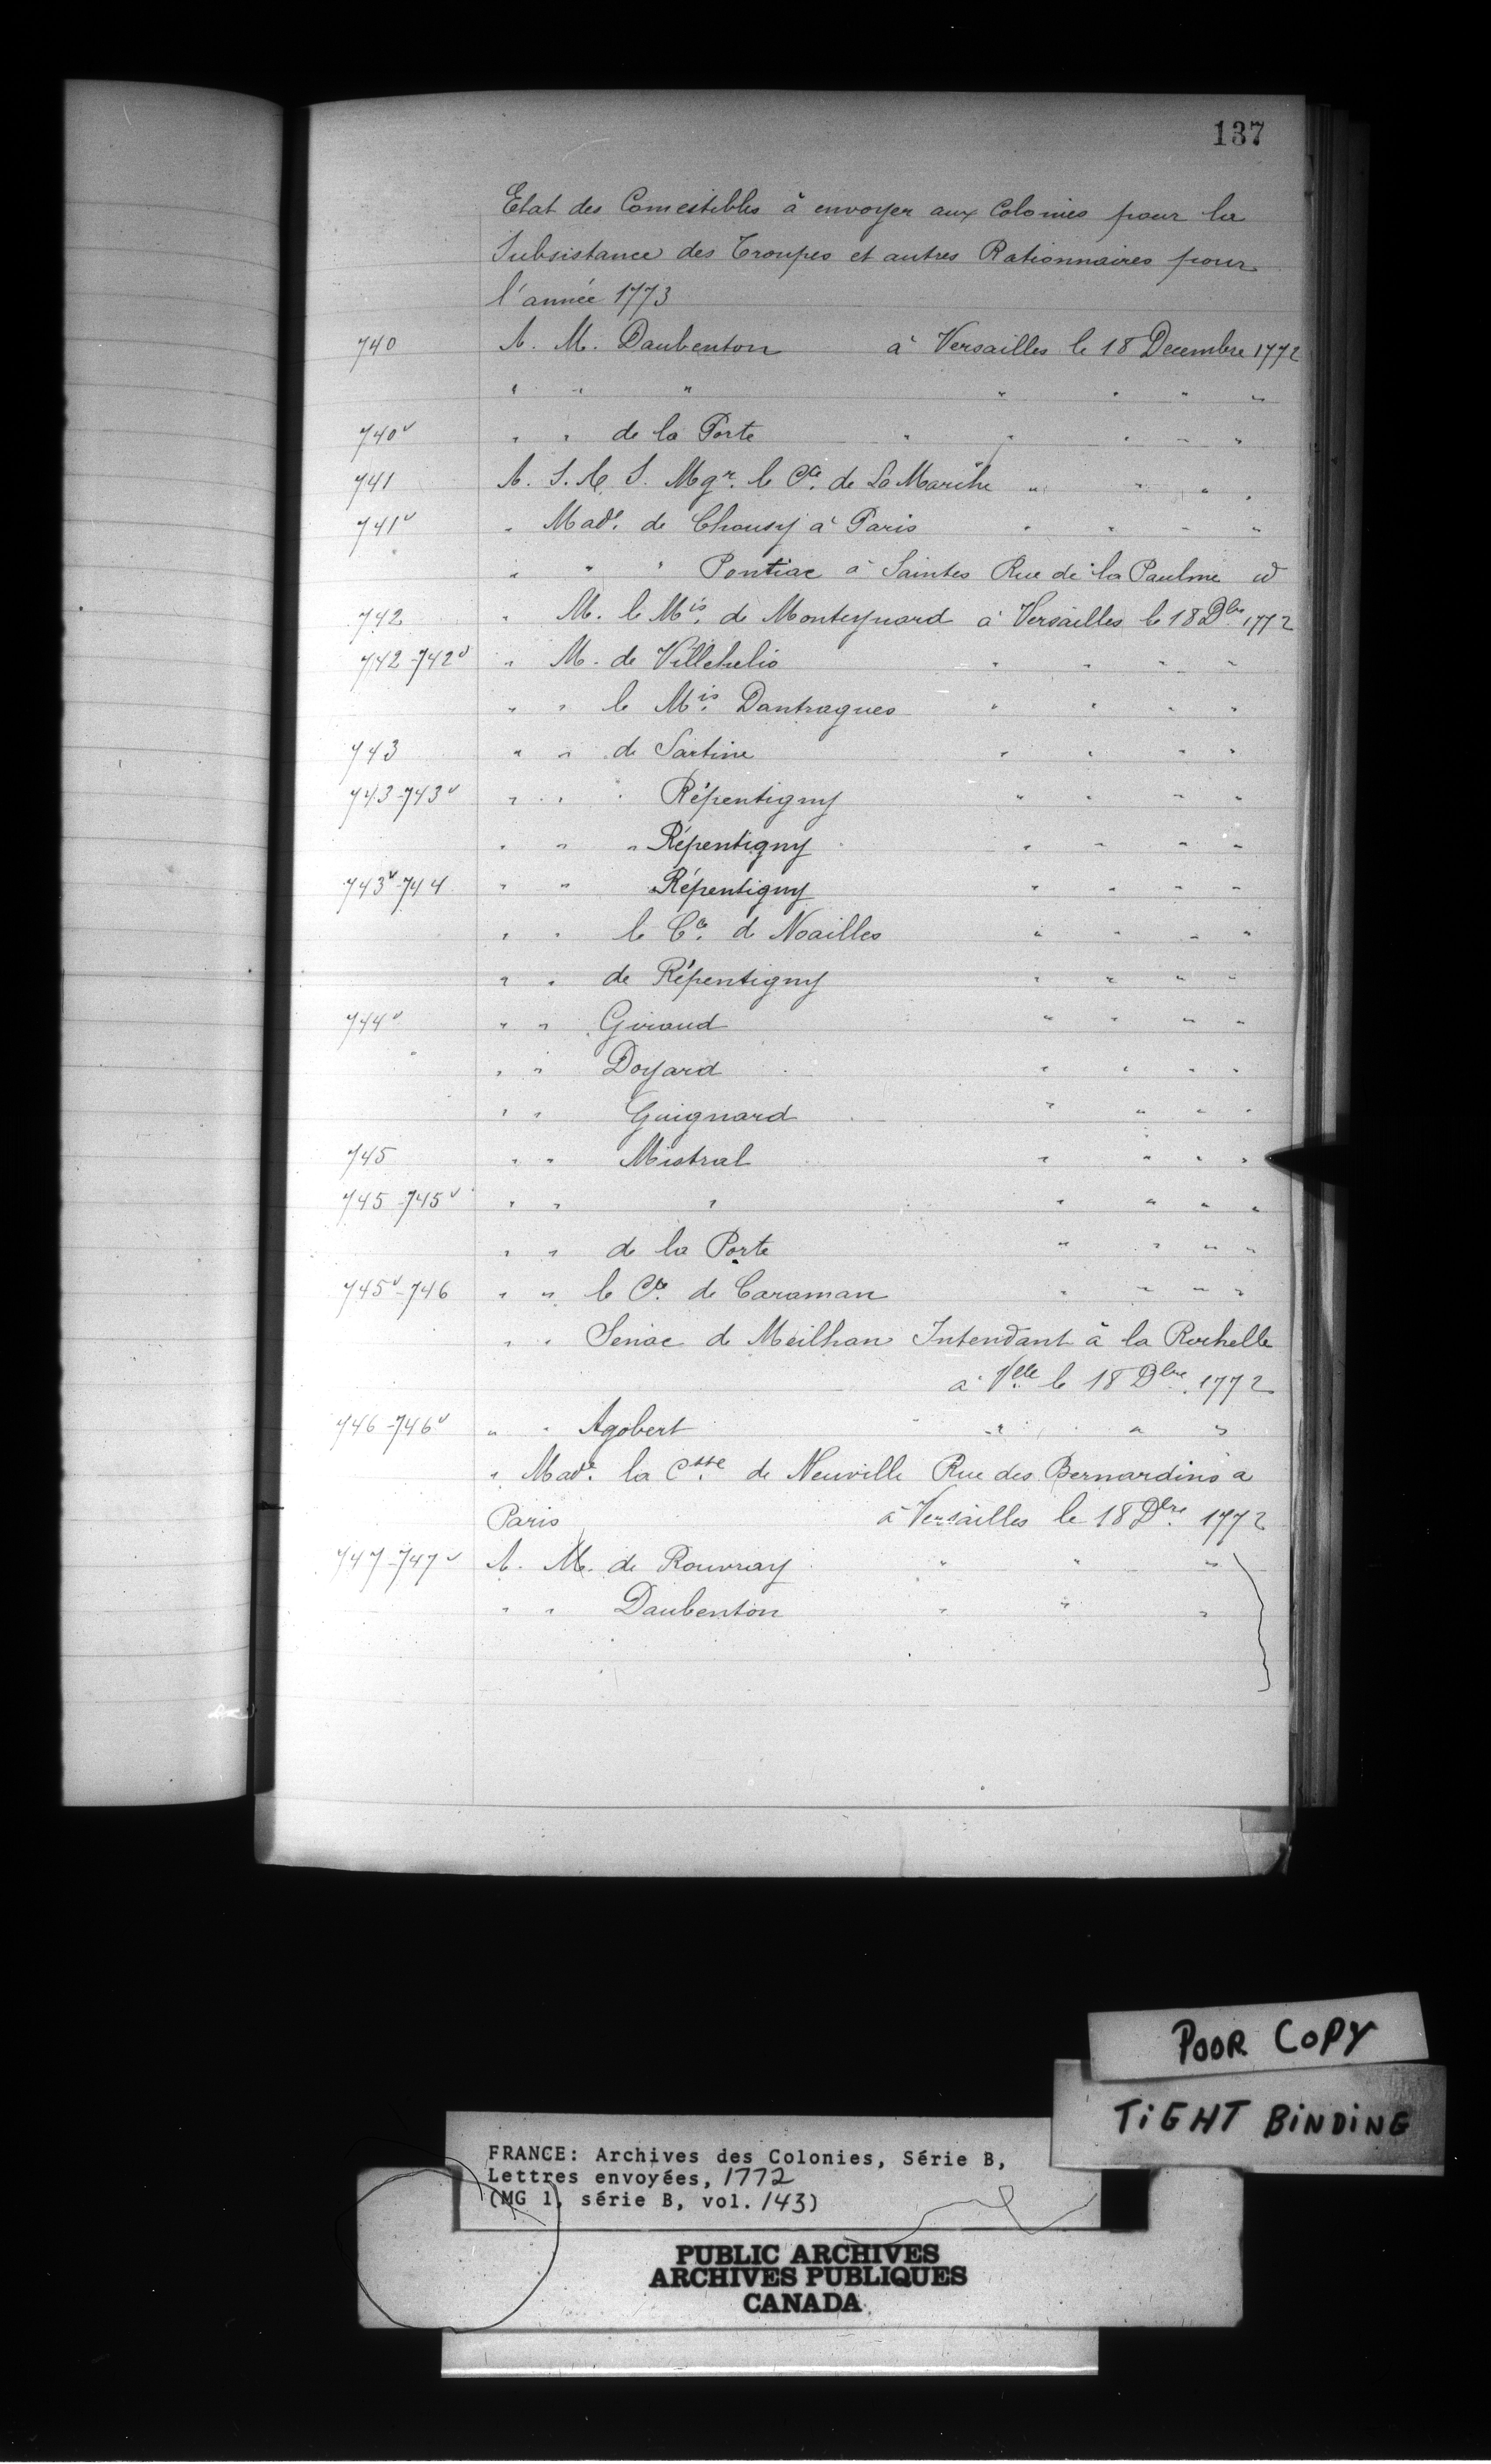 137
Etat des Comestibles à envoyer aux Colonies pour la
Subsistance des Troupes et autres Rationnaires pour
l'année 1773
740 A. M. Daubenton à Versailles le 18 Decembre 1772
" " " " " " "
740v " " de la Porte " " " " "
741 A. S. A. S. Mgr. le Cte. de La Marche " " " "
741v " Made. de Chousy à Paris " " " "
" " " Pontiac à Saintes Rue de la Paulme id
742 " M. le Mis. de Monteynard à Versailles le 18 Dbre 1772
742-742v " M. de Villehelio " " " "
" " le Mis. Dantragues " " " "
743 " " de Sartine " " " "
743-743v " " " Répentigny " " " "
" " " Répentigny " " " "
743v-744 " " Répentigny " " " "
" " le Cte. de Noailles " " " "
" " de Répentigny " " " "
744v " " Giraud " " " "
" " Doyard " " " "
" " Guignard " " " "
745 " " Mistral " " " "
745-745v " " " " " " "
" " de la Porte " " " "
745v-746 " " le Cte. de Caraman " " " "
" " Senac de Meilhan Intendant à la Rochelle
à Vlle le 18 Dbre. 1772
746-746v " " Agobert " " "
" Made. la Csse. de Neuville Rue des Bernardins a
Paris à Versailles le 18 Dbre. 1772
747-747v A. M. de Rouvray " " "
" " Daubenton " " "
POOR COPY
TIGHT BINDING
FRANCE: Archives des Colonies, Série B,
Lettres envoyées, 1772
(MG 1, série B, vol. 143)
PUBLIC ARCHIVES
ARCHIVES PUBLIQUES
CANADA